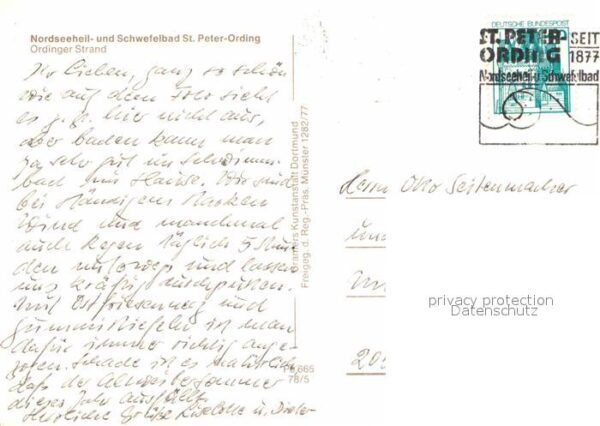 Nordseeheil- und Schwefelbad St. Peter-Ording
Ordinger Strand
Ihr Lieben, ganz so schön
wie auf dem Foto sieht
es z. Z. hier nicht aus,
aber baden kann man
ja sehr gut im Schwimm-
bad im Hause. Wir sind
bei ständigem starken
Wind und manchmal
auch Regen täglich 5 Stun
den unterwegs und lassen
uns kräftig durchpusten.
Mit Ostfriesennerz und
Gummistiefeln ist man
dafür immer richtig ange-
zogen. Schade ist es natürlich
daß der Altweibersommer
dieses Jahr ausfällt.
Herzliche Grüße Liselotte u. Dieter
Cramers Kunstanstalt Dortmund
Freigeg. d. Reg.-Präs. Münster 1282/77
665
78/5
DEUTSCHE BUNDESPOST
ST. PETER-
ORDING
SEIT
1877
Nordseeheil-u. Schwefelbad
Herrn Otto Seitenmacher
privacy protection
Datenschutz